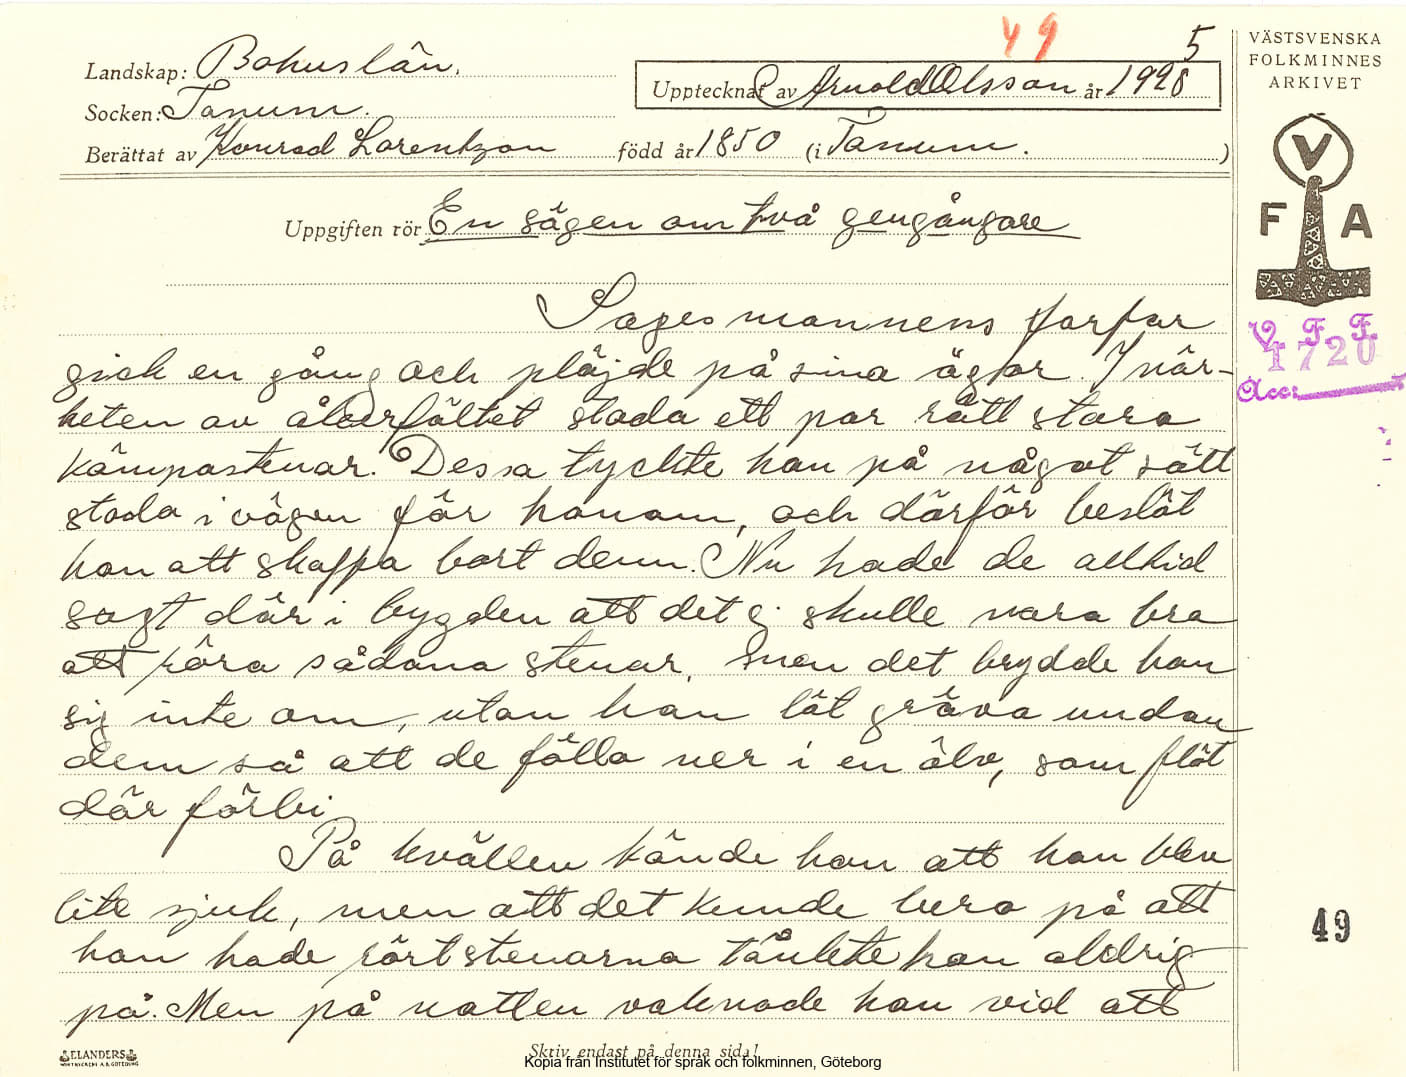 49 5
Landskap: Bohuslän.
Upptecknat av Arnold Olsson år 1928
Socken: Tanum.
Berättat av Konrad Lorentzon född år 1850 (i Tanum. )
Uppgiften rör En sägen om två gengångare
Sagesmannens farfar
gick en gång och plöjde på sina ägor. I när-
heten av åkerfältet stodo ett par rätt stora
kämpastenar. Dessa tyckte han på något sätt
stodo i vägen för honom, och därför beslöt
han att skaffa bort dem. Nu hade de alltid
sagt där i bygden att det ej skulle vara bra
att röra sådana stenar, men det brydde han
sig inte om, utan han lät gräva undan
dem så att de föllo ner i en älv, som flöt
där förbi
På kvällen kände han att han blev
lite sjuk, men att det kunde bero på att
han hade rört stenarna tänkte han aldrig
på. Men på natten vaknade han vid att
Skriv endast på denna sida!
Kopia från Institutet för språk och folkminnen, Göteborg
ELANDERS
BOKTRYCKERI A.B. GÖTEBORG
VÄSTSVENSKA
FOLKMINNES
ARKIVET
V
F A
V. F. F.
1720
Acc.
49